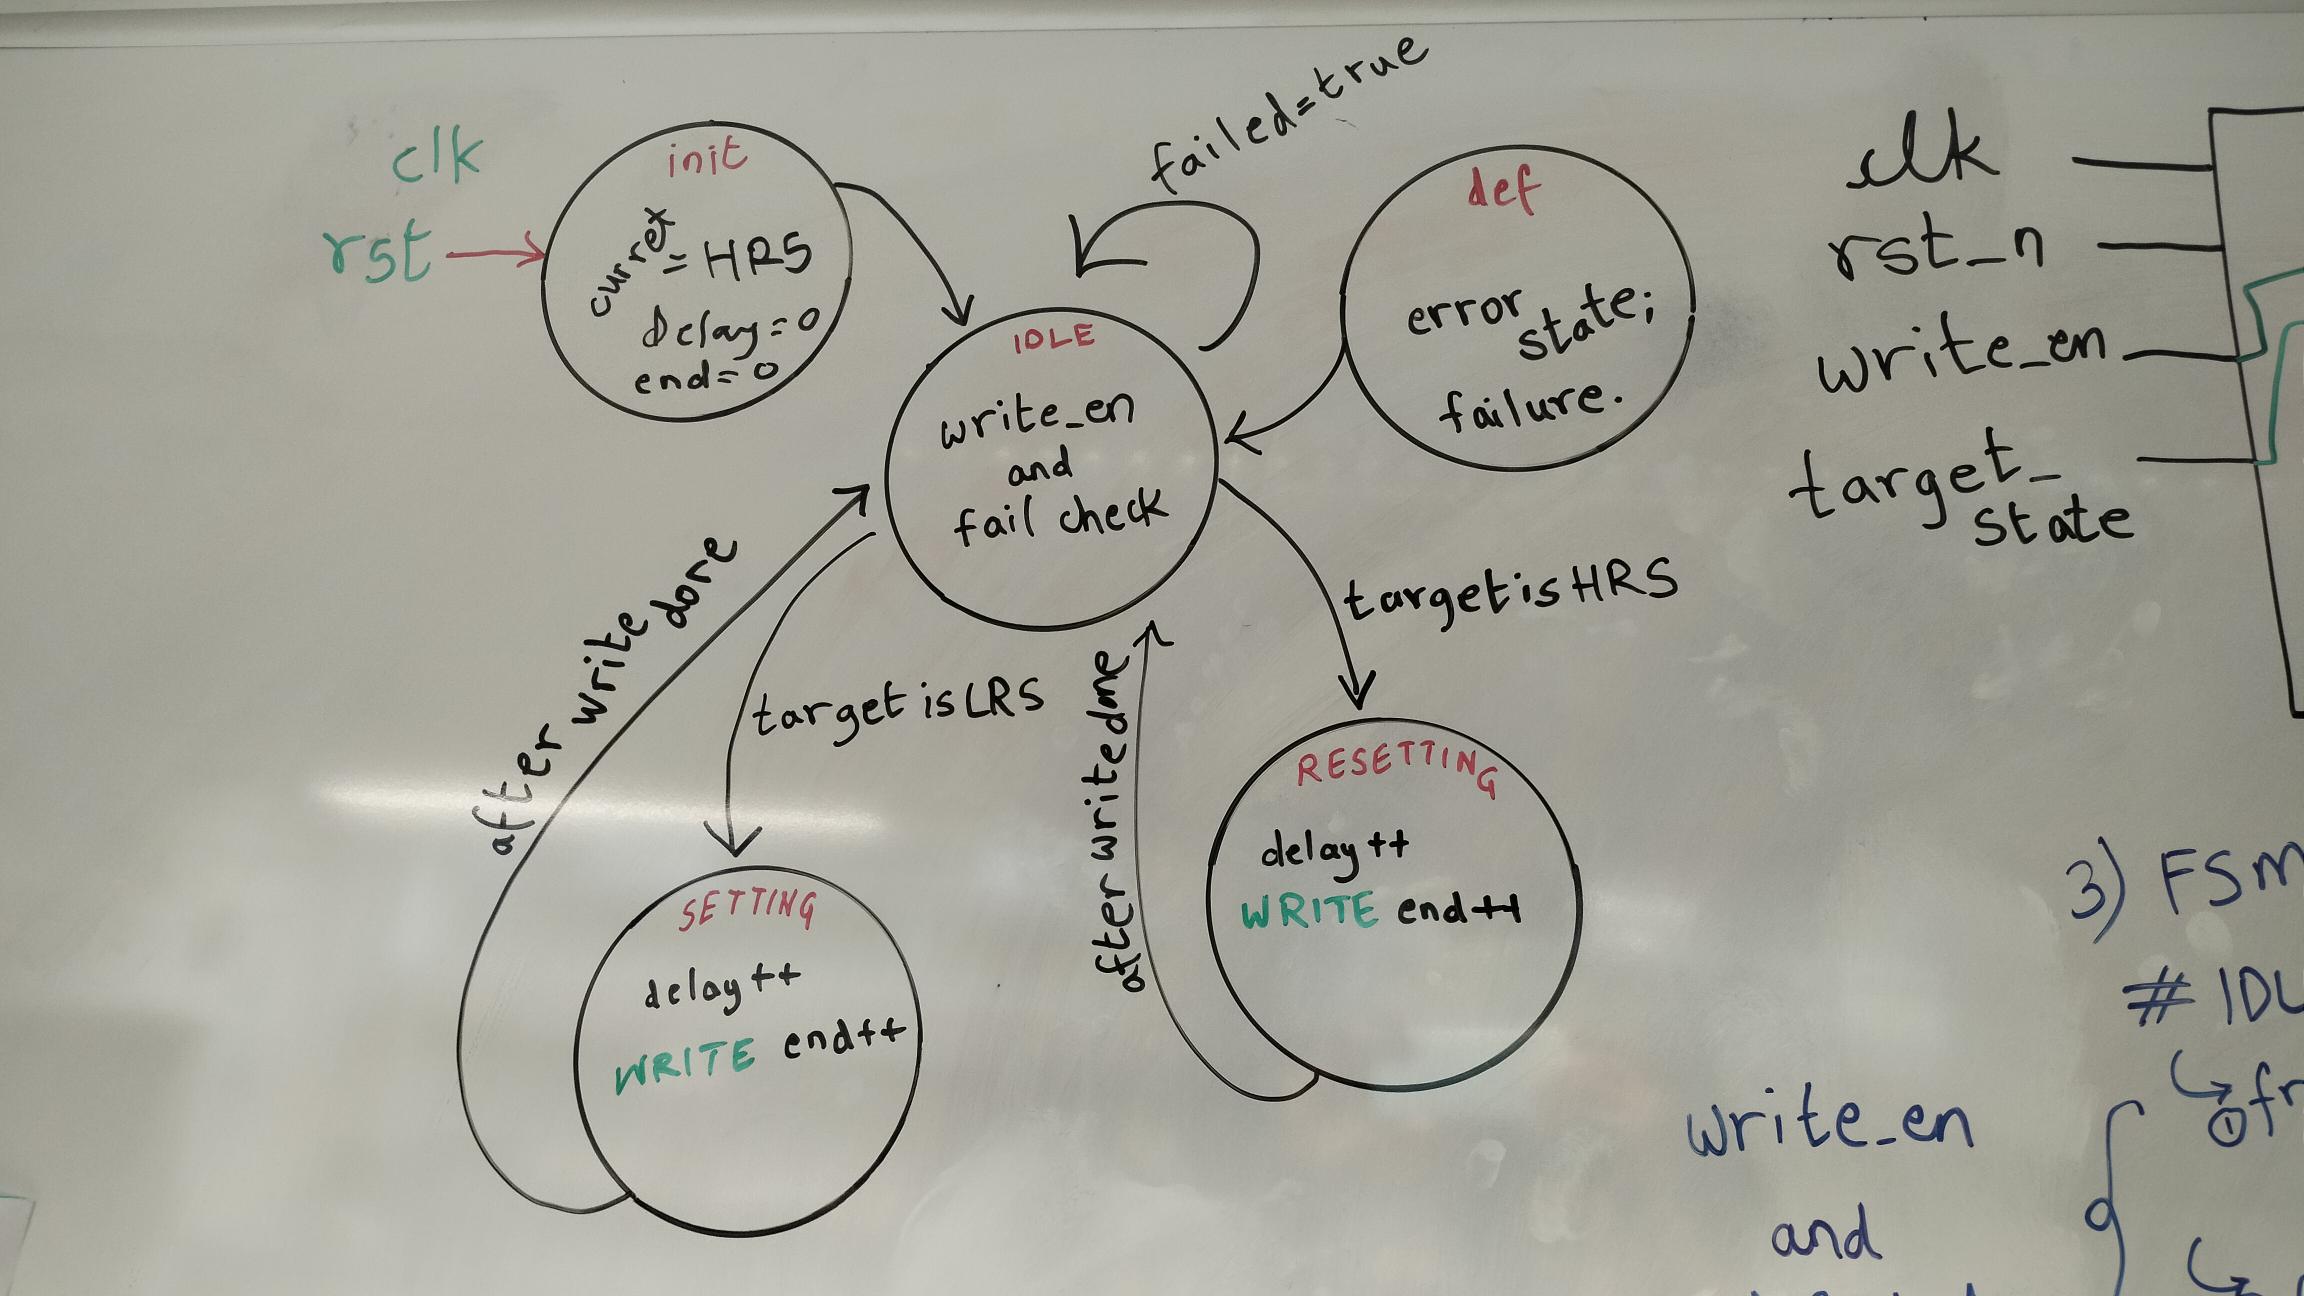 clk
rst
init
curret
= HRS
Delay=0
end=0
failed=true
IDLE
write_en
and
fail check
def
error
state;
failure.
after write
done
target is LRS
target is HRS
after write done
SETTING
delay++
WRITE end++
RESETTING
delay++
WRITE end++
clk
rst_n
write_en
target_
state
3) FSM
# IDL
① fr
write_en
and